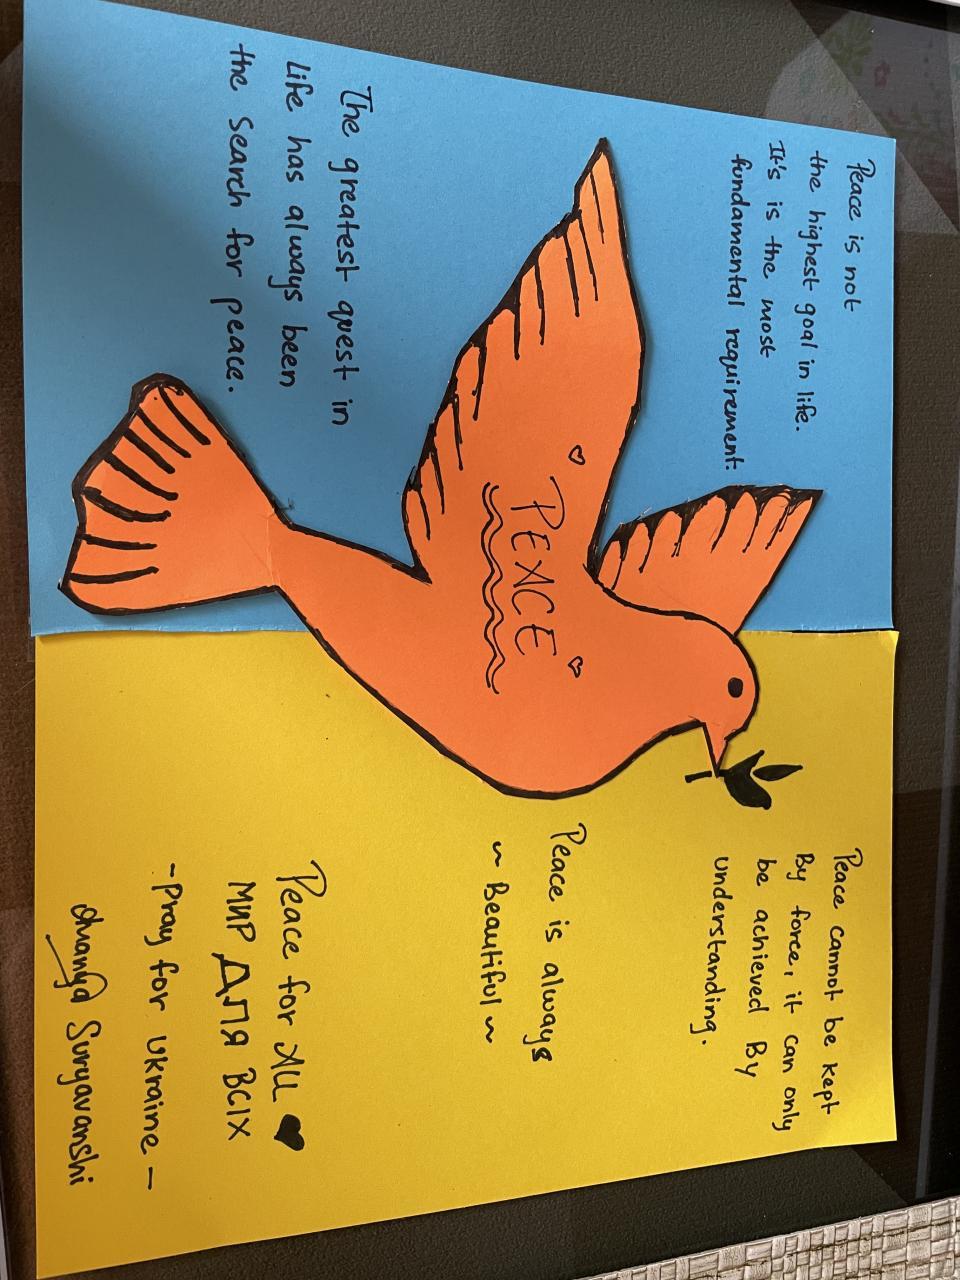 Peace is not
the highest goal in life.
It's is the most
fundamental requirement.
PEACE
The greatest quest in
life has always been
the search for peace.
Peace cannot be kept
By force, it can only
be achieved By
understanding.
Peace is always
~ Beautiful ~
Peace for ALL ♥
МИР ДЛЯ ВСІХ
- Pray for Ukraine -
Suryavanshi